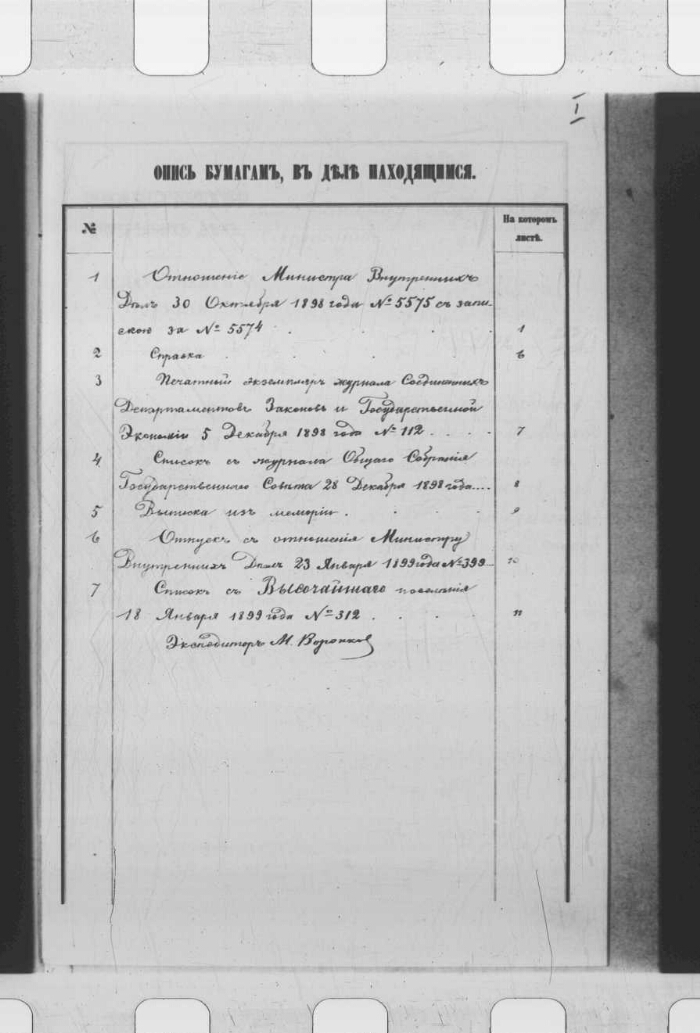 I
ОПИСЬ БУМАГАМЪ, ВЪ ДѢЛѢ НАХОДЯЩИМСЯ.
№
На которомъ
листѣ.
1 Отношеніе Министра Внутреннихъ
Дѣлъ 30 Октября 1898 года № 5575 съ запи-
скою за № 5574 . . . . 1
2 Справка . . . . 6
3 Печатный экземпляръ журнала Соединенныхъ
Департаментовъ Законовъ и Государственной
Экономіи 5 Декабря 1898 года № 112 . . . . 7
4 Списокъ съ журнала Общаго Собранія
Государственнаго Совѣта 28 Декабря 1898 года.... 8
5 Выписка изъ меморіи . . . . 9
6 Отпускъ съ отношенія Министру
Внутреннихъ Дѣлъ 23 Января 1899 года № 399... 10
7 Списокъ съ Высочайшаго повелѣнія
18 Января 1899 года № 312 . . . . 11
Экспедиторъ М. Воронков